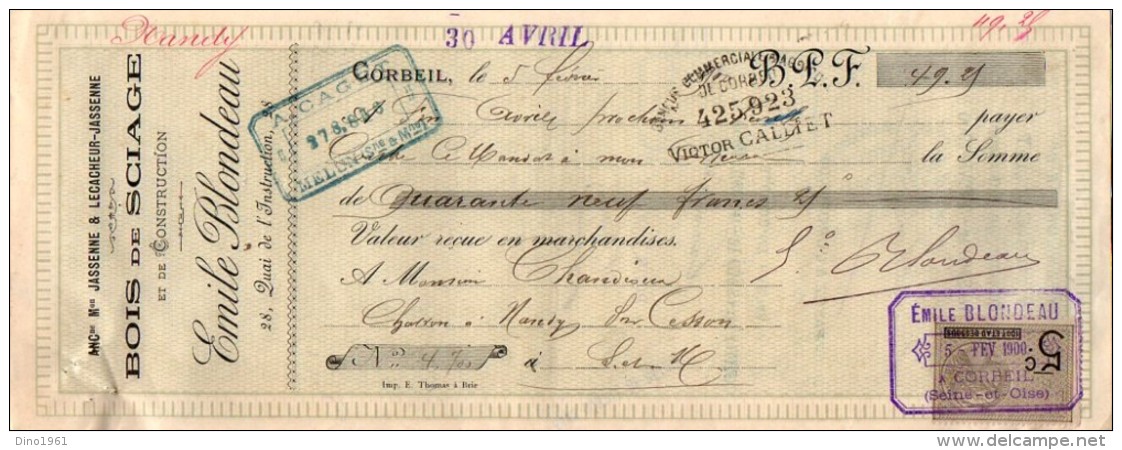 Nandy
30 AVRIL
49.25
ANCne Mon JASSENNE & LECACHEUR-JASSENNE
BOIS DE SCIAGE
ET DE CONSTRUCTION
Emile Blondeau
28, Quai de l'Instruction, 28
MELUN (Sne & Mne)
CORBEIL, le 5 février
B.P.F. 49.25
425923
VICTOR CALLIET
fin Avril prochain payer
ce Mandat à mon la Somme
de Quarante neuf francs 25
Valeur reçue en marchandises.
A Monsieur
Charron à Nandy par Cesson
No 470 à S. et M.
Imp. E. Thomas à Brie
Blondeau
ÉMILE BLONDEAU
5 - FEV 1900
A CORBEIL
(Seine-et-Oise)
5c
Dino1961
delcampe.net